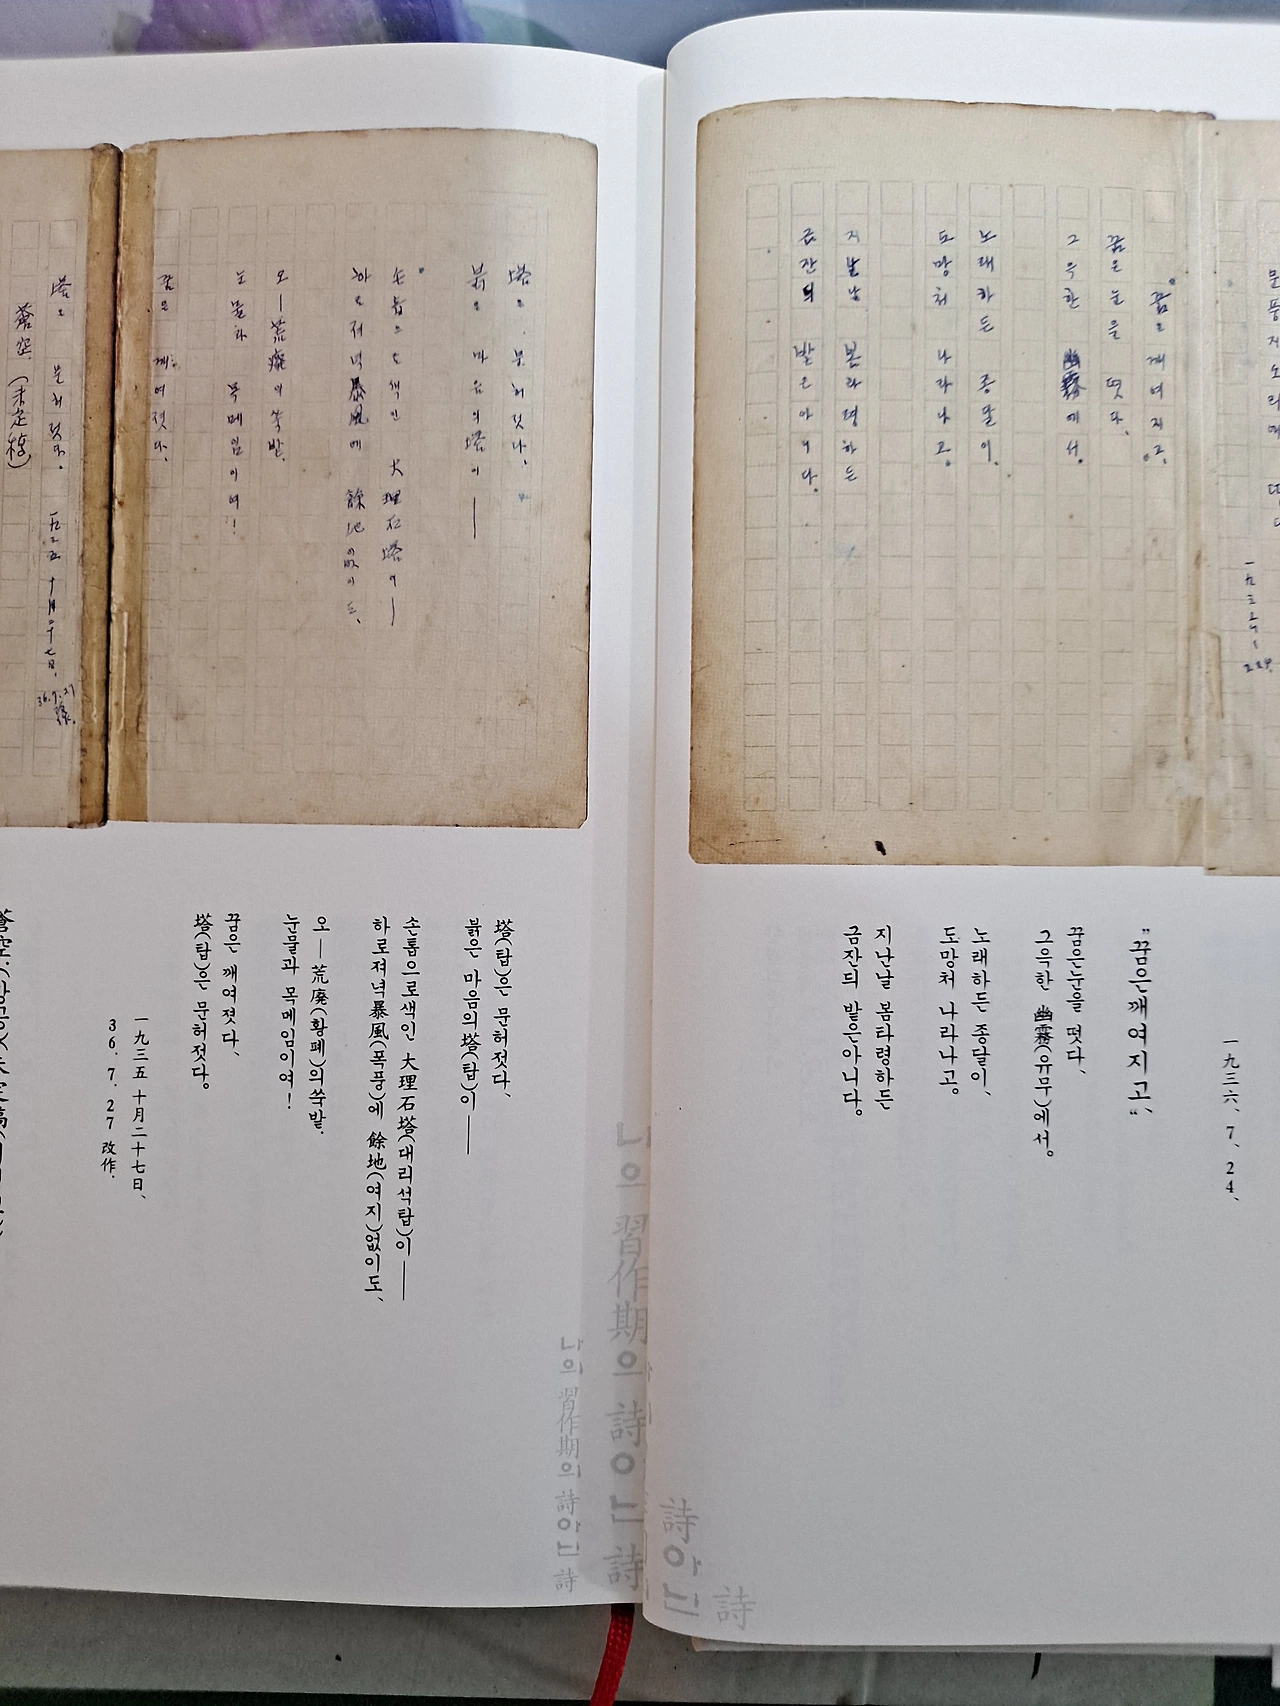 꿈은 깨여지고.
꿈은 눈을 떳다.
그윽한 幽霧에서.
노래하든 종달이.
도망처 나라나고.
지난날 봄타령하든
금잔듸 밭은아니다.
一九三六、7、24、
"꿈은깨여지고、"
꿈은눈을 떳다、
그윽한 幽霧(유무)에서。
노래하든 종달이、
도망처 나라나고。
지난날 봄타령하든
금잔듸 밭은아니다。
塔은 문허젓다.
붉은 마음의 塔이 ──
손톱으로색인 大理石塔이 ─
하로저녁暴風에 餘地없이도、
오─荒廢의 쑥밭.
눈물과 목메임이여!
꿈은 깨여젓다.
塔은 문허젓다.
一九三五 十月二十七日、
蒼空. (未定稿)
塔(탑)은 문허젓다、
붉은 마음의塔(탑)이 ──
손톱으로색인 大理石塔(대리석탑)이 ──
하로저녁暴風(폭풍)에 餘地(여지)없이도、
오─ 荒廢(황폐)의쑥밭.
눈물과 목메임이여!
꿈은 깨여졋다、
塔(탑)은 문허젓다。
一九三五 十月二十七日、
36. 7. 27 改作.
나의 習作期의 詩아닌 詩
나의 習作期의 詩아닌 詩
詩아닌 詩